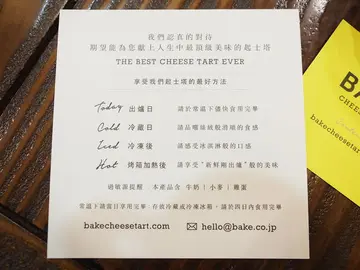 我們認真的對待
期望能為您獻上人生中最頂級美味的起士塔
THE BEST CHEESE TART EVER
享受我們起士塔的最好方法
Today 出爐日 請於常溫下儘快食用完畢
Cold 冷藏日 請品嚐絲絨般滑順的食感
Iced 冷凍後 請感受冰淇淋般的口感
Hot 烤箱加熱後 請享受"新鮮剛出爐"般的美味
過敏源提醒 本產品含 牛奶｜小麥｜雞蛋
常溫下請當日享用完畢；存放冷藏或冷凍冰箱，請於四日內食用完畢
bakecheesetart.com hello@bake.co.jp
BA
CHEES
bakechees